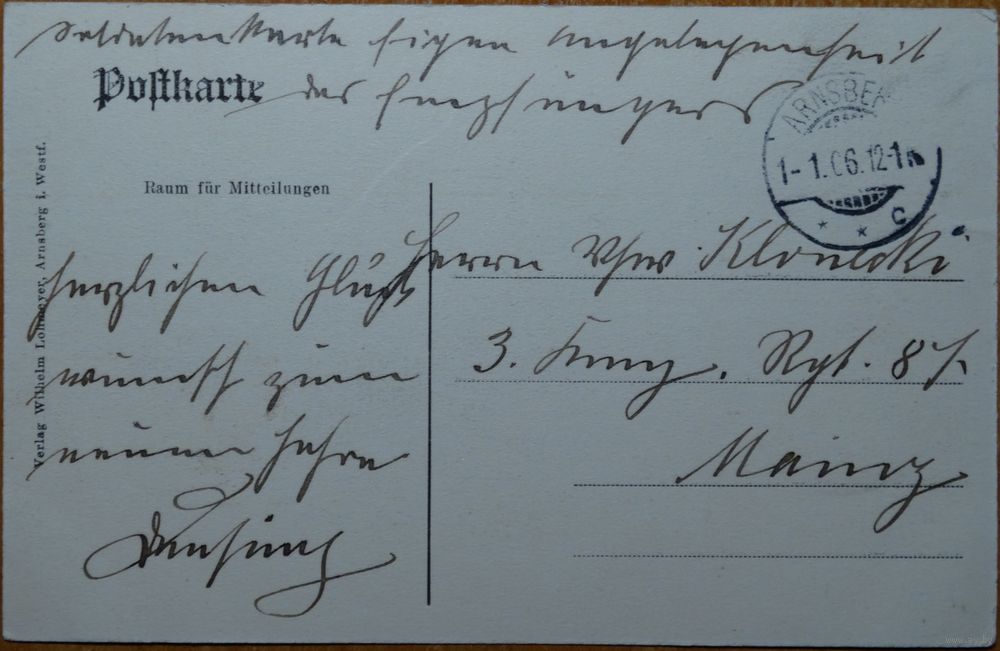 Soldatenkarte Eigene Angelegenheit
des Empfängers
Postkarte
ARNSBERG
1-1.06.12-1N
* * C
Raum für Mitteilungen
Verlag Wilhelm Lohmeyer, Arnsberg i. Westf.
herzlichen Glück
wunsch zum
neuen Jahre
Herrn
3. Komp. Rgt. 87.
Mainz